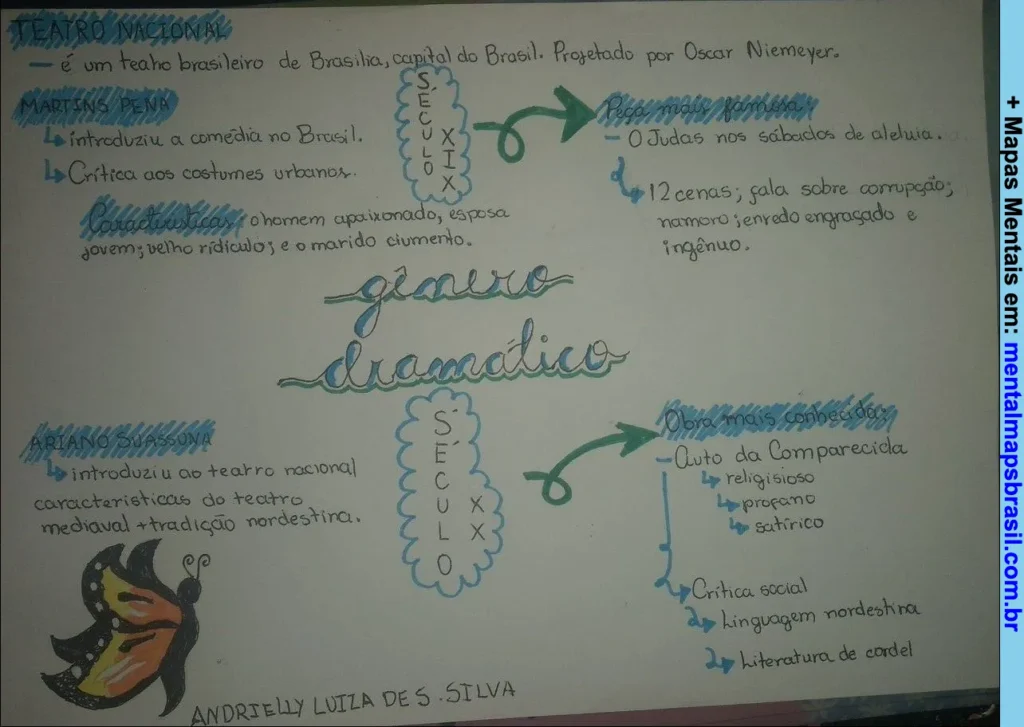 TEATRO NACIONAL
— é um teatro brasileiro de Brasilia, capital do Brasil. Projetado por Oscar Niemeyer.
MARTINS PENA
introduziu a comédia no Brasil.
Crítica aos costumes urbanos.
Características: o homem apaixonado, esposa
jovem; velho ridículo; e o marido ciumento.
SÉCULO XIX
Peça mais famosa:
— O Judas nos sábados de aleluia.
12 cenas; fala sobre corrupção;
namoro; enredo engraçado e
ingênuo.
gênero
dramático
ARIANO SUASSUNA
introduziu ao teatro nacional
caracteristicas do teatro
mediaval + tradição nordestina.
SÉCULO XX
Obra mais conhecida:
— Auto da Comparecida
religisioso
profano
satírico
Crítica social
Linguagem nordestina
Literatura de cordel
ANDRIELLY LUIZA DE S. SILVA
+ Mapas Mentais em: mentalmapsbrasil.com.br